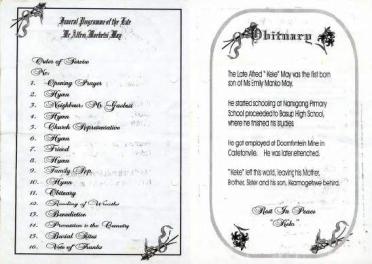 Funeral Programme of the Late
Order of Service
No:
1. Opening Prayer
2. Hymn
3. Neighbour: Mr
4. Hymn
5. Church Representative
6. Hymn
7. Friend
8. Hymn
9. Family Rep.
10. Hymn
11. Obituary
12. Reading of Wreaths
13. Benediction
14. Procession to the Cemetry
15. Burial Rites
16. Vote of Thanks
Obituary
The Late Alfred "Keke" May was the first born
son of Ms Emily Manko May.
He started schooling at Namgang Primary
School proceeded to Basup High School,
where he finished his studies
He got employed at Doornfontein Mine in
Carletonville. He was later retrenched.
"Keke" left this world, leaving his Mother,
Brother, Sister and his son, Keamogetswe behind.
Rest In Peace
"Keke"